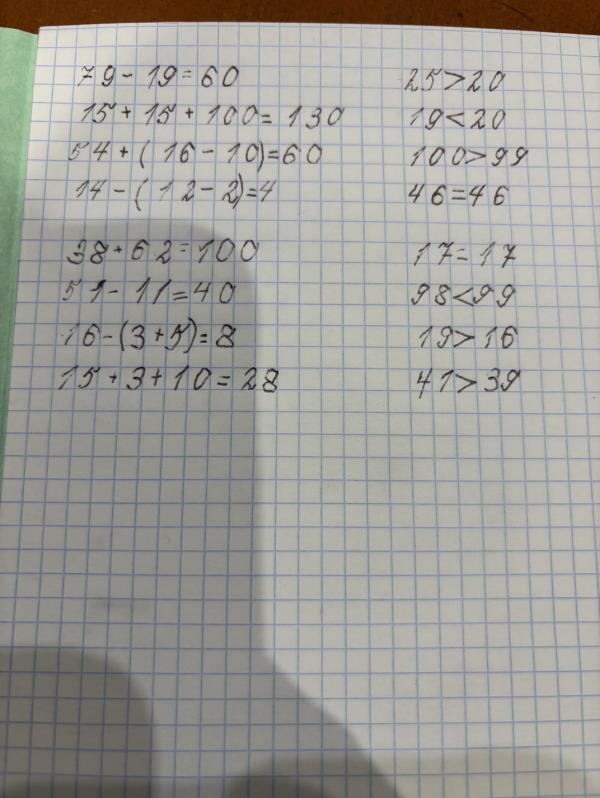 79-19=60
15+15+100=130
54+(16-10)=60
14-(12-2)=4
38+62=100
51-11=40
16-(3+5)=8
15+3+10=28
25>20
19<20
100>99
46=46
17=17
98<99
19>16
41>39